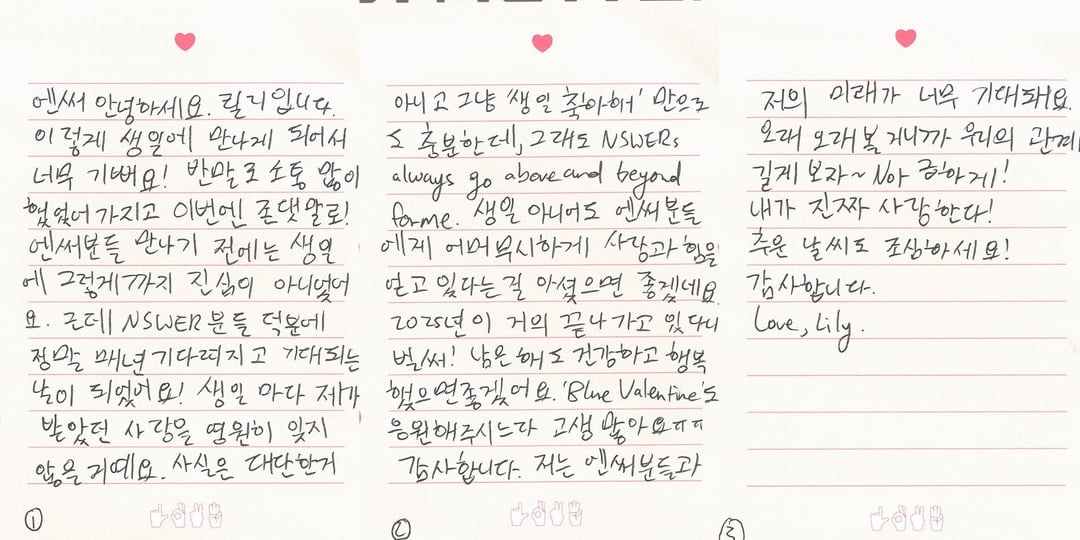 엔써 안녕하세요. 릴리입니다.
이렇게 생일에 만나게 되어서
너무 기뻐요! 반말로 소통 많이
했었어가지고 이번엔 존댓말로!
엔써분들 만나기 전에는 생일
에 그렇게까지 진심이 아니었어
요. 근데 NSWER분들 덕분에
정말 매년 기다려지고 기대되는
날이 되었어요! 생일 마다 제가
받았던 사랑을 영원히 잊지
않을 거예요. 사실은 대단한거
①
아니고 그냥 '생일 축하해' 만으로
도 충분한데, 그래도 NSWERs
always go above and beyond
for me. 생일 아니어도 엔써분들
에게 어머무시하게 사랑과 힘을
얻고 있다는 걸 아셨으면 좋겠네요.
2025년이 거의 끝나가고 있다니
벌써! 남은 해도 건강하고 행복
했으면좋겠어요. 'Blue Valentine'도
응원해주시느라 고생 많아요ㅠㅠ
감사합니다. 저는 엔써분들과
②
저의 미래가 너무 기대돼요.
오래 오래볼 거니까 우리의 관계
길게 보자~ 하게!
내가 진짜 사랑한다!
추운 날씨도 조심하세요!
감사합니다.
Love, Lily.
③